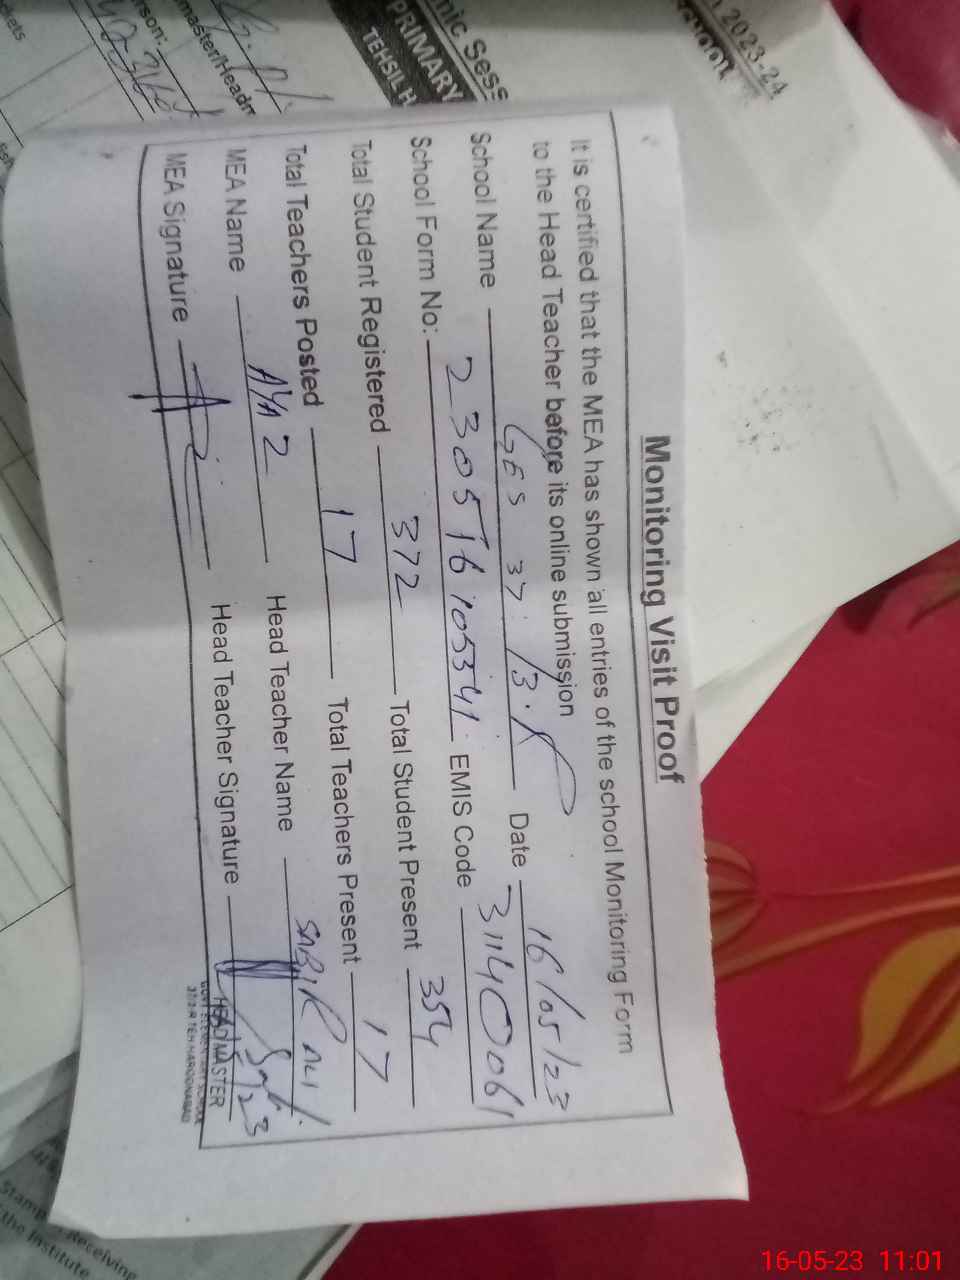 Monitoring Visit Proof
It is certified that the MEA has shown all entries of the school Monitoring Form
to the Head Teacher before its online submission
School Name GES 37/3.R Date 16/05/23
School Form No: 230516105341 EMIS Code 31140061
Total Student Registered 372 Total Student Present 354
Total Teachers Posted 17 Total Teachers Present 17
MEA Name Head Teacher Name SABIR ALI
MEA Signature Head Teacher Signature
HEADMASTER
GOVT. ELEMENTARY SCHOOL
37/3-R TEH HAROONABAD
n 2023-24
SCHOOL
mic Sess
PRIMARY
TEHSIL H
master/Headm
rson:
Stamp Receiving
the Institute
16-05-23 11:01